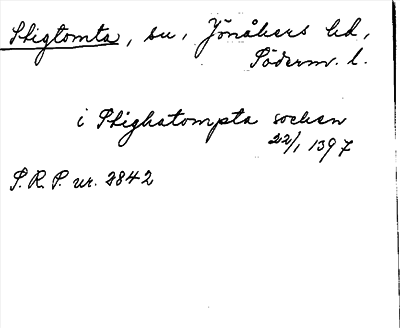 Stigtomta, sn, Jönåkers hd,
Söderm. l.
i Stighatompta socken
22/1 1397
S.R.P. nr. 2842